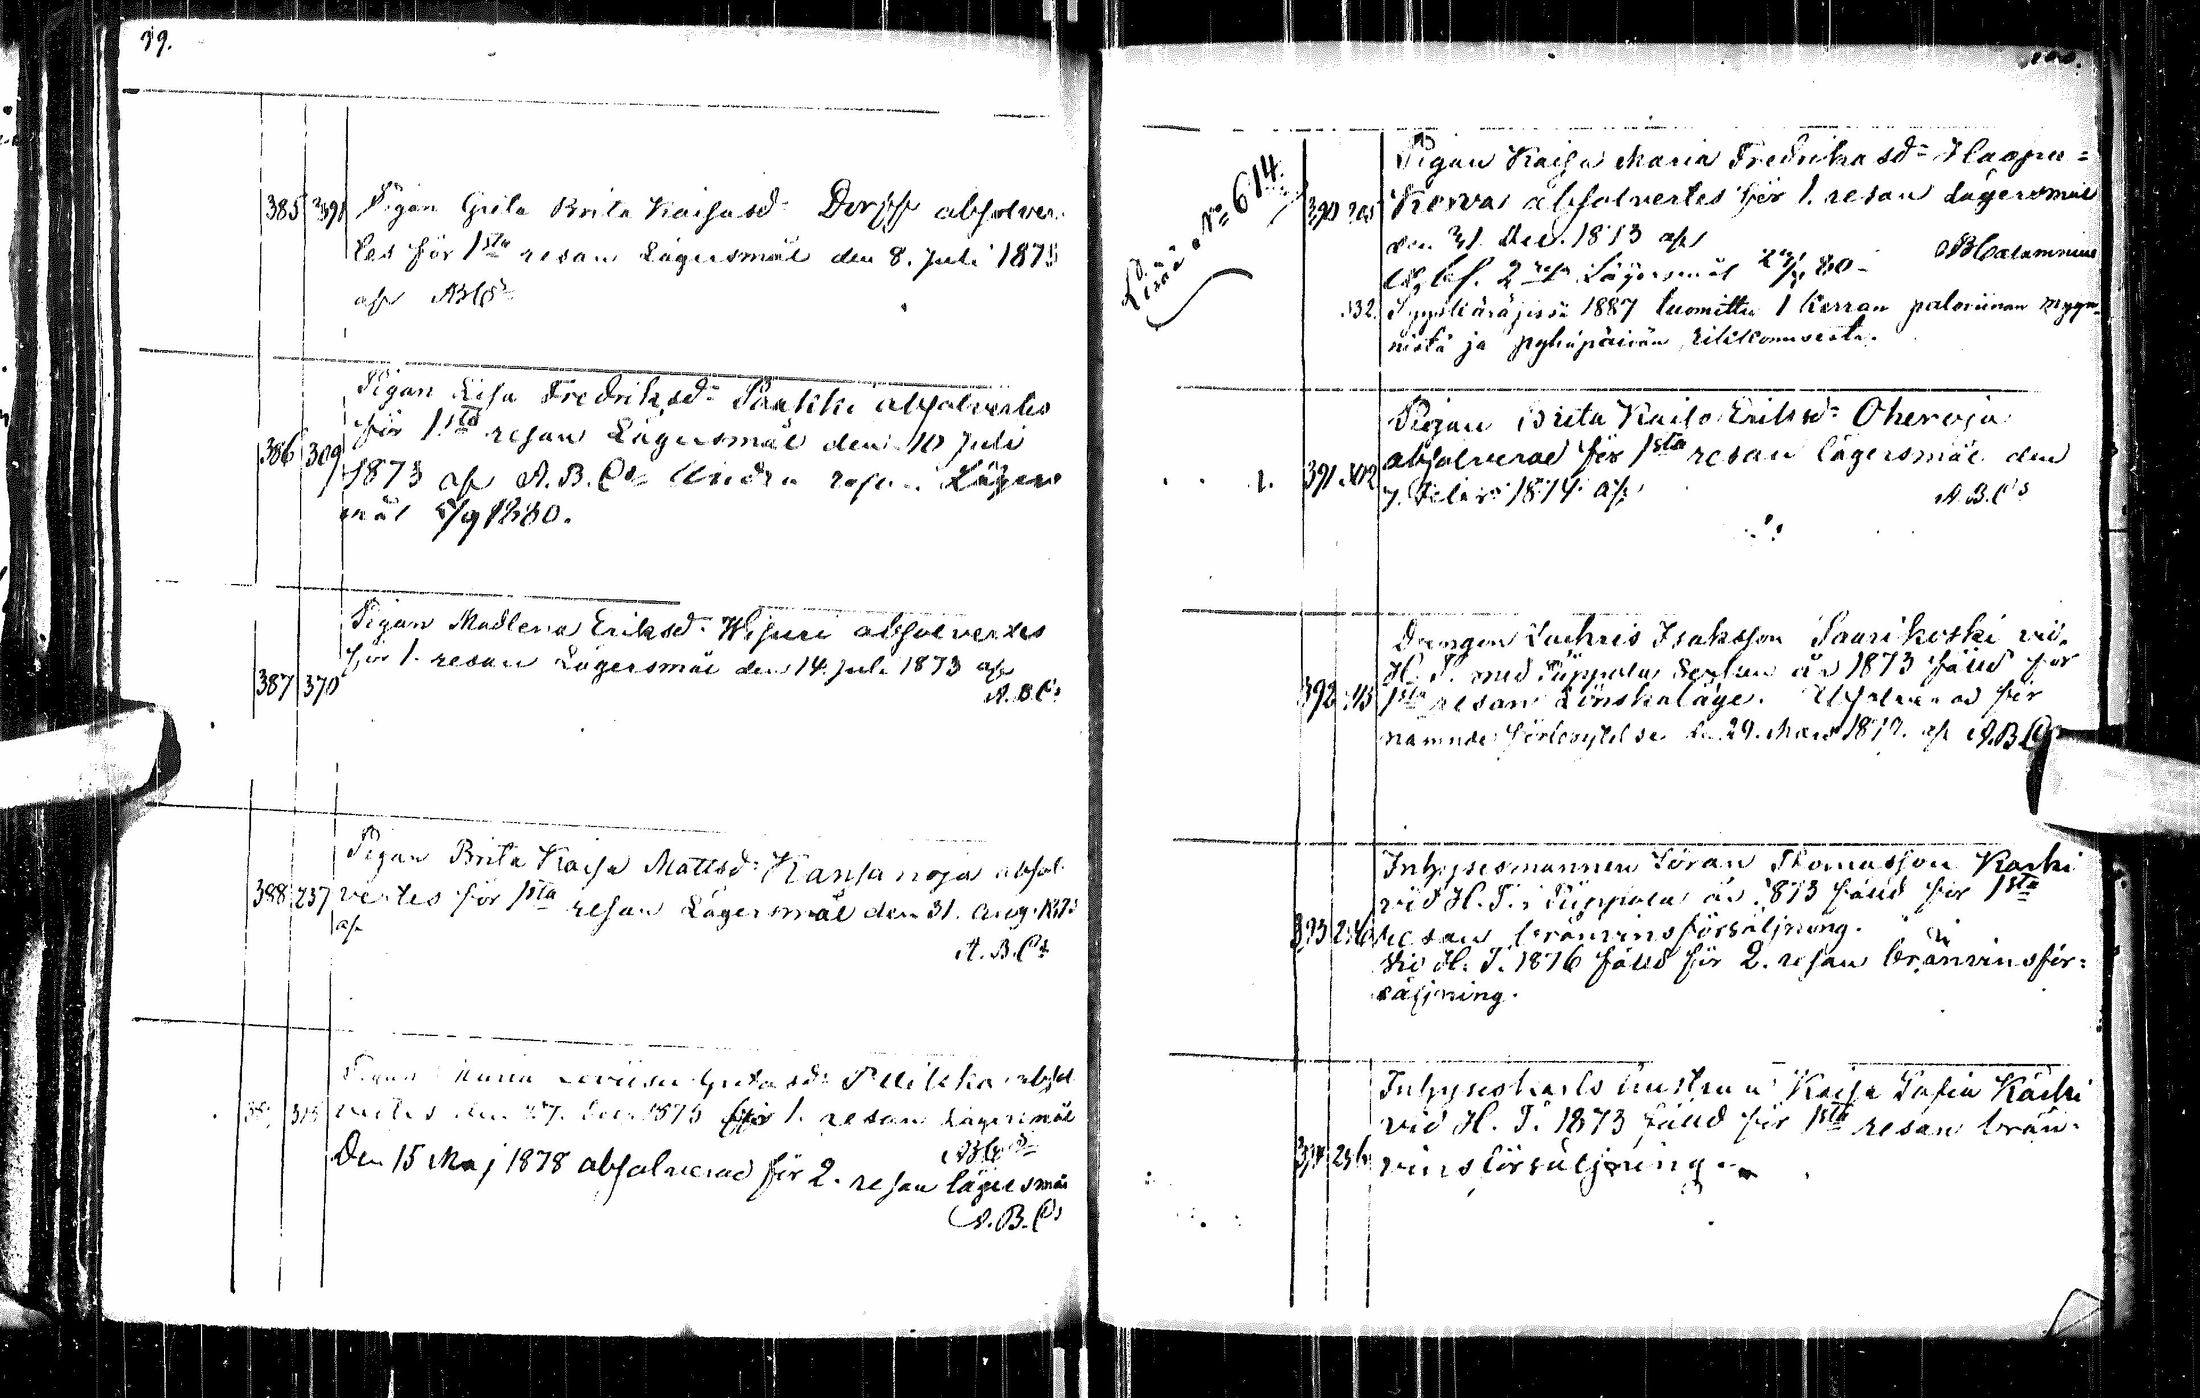 99.
385 391 Pigan Greta Brita Kaisasd: absolver-
tes för 1sta resan Lägersmål den 8. Juli 1873
af ABCs
Pigan Lisa Fredriksd: Paakki absolvertes
för 1sta resan Lägersmål den 10 Juli
386 309 1873 af A.B.Cs Andra resan Lägers
mål 5/9 1880.
Pigan Madlena Eriksd: Wisuri absolvertes
för 1. resan Lägersmål den 14. Juli 1873 af
387 370 A.B.Cs
Pigan Brita Kaisa Mattsd: Kansanoja absol-
388 237 vertes för 1sta resan Lägersmål den 31. Aug. 1873
af
A.B.Cs
Pigan Maria Loviisa Gretasd: absol
313 vertes den 27. 1873 för 1. resan Lägersmål
ABCs
Den 15 Maj 1878 absolverad för 2. resan lägersmål
A.B.Cs
100.
Lisää No 614.
Pigan Kaisa Maria Fredrikasd: Haapa=
390 Korva absolvertes för 1. resan Lägersmål
den 31. Dec. 1873 af
ABCalamnius
2 resa Lägersmål 80
132. Syyskäräjissä 1887 tuomittu 1 kerran paloviinan myyn-
nistä ja pyhäpäivän rikkomisesta.
Pigan Brita Kaisa Eriksd: Oheroja
absolverad för 1sta resan lägersmål den
391 7. Febr. 1874 af A.B.Cs
Drengen Zachris Isaksson Saarikoski vid
H. T. med Piippola socken år 1873 fälld för
392 1sta resan Lönskaläge. Absolverad för
nämnde förbrytelse d. 29. Mars 1817. af A.B.Cs
Inhysesmannen Göran Thomasson Karki
vid H. T. i Piippola år 1873 fälld för 1sta
393 256 resan bränvinsförsäljning.
Vid H. T. 1876 fälld för 2. resan bränvinsför=
säljning.
Inhyseskarls hustrun Kaisa Sofia Käcki
vid H. T. 1873 fälld för 1sta resan brän-
394 256 vinsförsäljning.